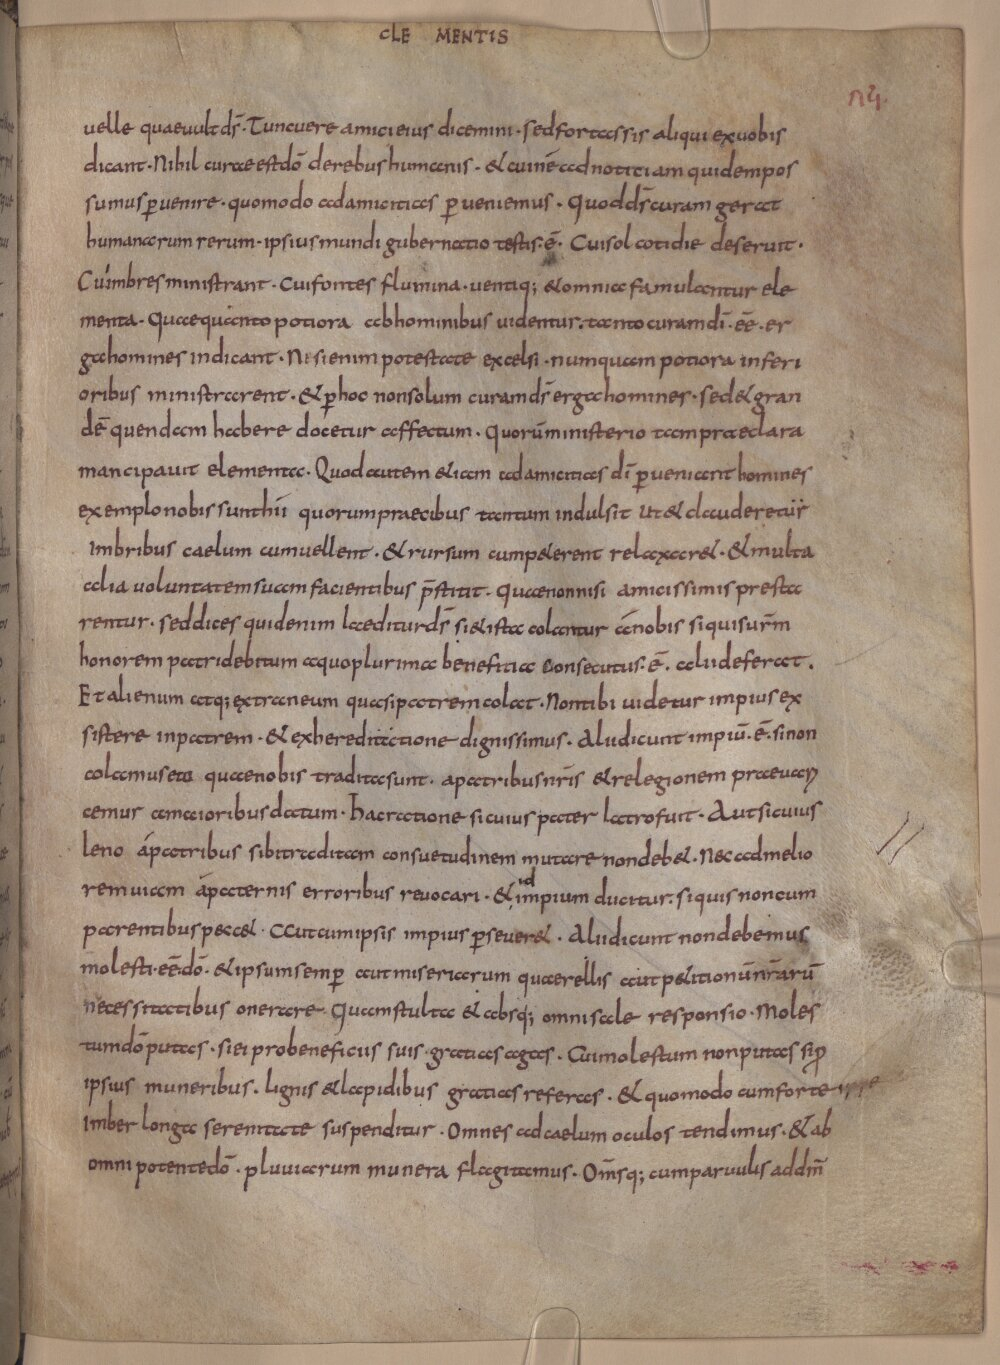 CLE MENTIS
uelle quaeuult ds̄. Tuncuere amici eius dicemini. sed fortassis aliqui ex uobis
dicant. Nihil curae est dō de rebus humanis. & cui nē ad notitiam quidem pos
sumus ꝑuenire. quomodo ad amicitias ꝑueniemus. Quod ds̄ curam gerat
humanarum rerum. ipsius mundi gubernatio testis. ē. Cui sol cotidie deseruit.
Cui imbres ministrant. Cui fontes flumina. uentiq; & omnia famulantur ele
menta. Quae quanto potiora ab hominibus uidentur. tanto curam dī. eē. er
ga homines indicant. Nisi enim potestate excelsi. numquam potiora inferi
oribus ministrarent. & ꝑ hoc non solum curam ds̄ erga homines. sed & gran
dē quendam habere docetur affectum. Quorū ministerio tam praeclara
mancipauit elementa. Quod autem & iam ad amicitias dī ꝑueniant homines
exemplo nobis sunt hii quorum praecibus tantum indulsit ut & clauderetur
imbribus caelum cum uellent. & rursum cum p&erent relaxar&. & multa
alia uoluntatem suam facientibus p̄stitit. Quae non nisi amicissimis presta
rentur. sed dices quid enim laeditur ds̄ si & ista colantur a nobis si quis urm̄
honorem patri debitum a quo plurima benefitia consecutus. ē. alii deferat.
Et alienum atq; extraneum quasi patrem colat. Non tibi uidetur impius ex
sistere in patrem. & exhereditatione dignissimus. Alii dicunt impiū. ē. si non
colamus ea quae nobis tradita sunt. a patribus nr̄is & relegionem
cemus a maioribus datum. Hac ratione si cuius pater latro fuit. Aut si cuius
leno á patribus sibi traditam consuetudinem mutare non deb&. Nec ad melio
rem uiam á paternis erroribus reuocari. & id impium ducitur. si quis non cum
parentibus pecc&. aut cum ipsis impius ꝑseuer&. Alii dicunt non debemus
molesti. eē dō. & ipsum semꝑ aut miseriarum quaerellis aut p&itionū nr̄arū
necessitatibus onerare. Quam stulta & absq; omni sale responsio. Moles
tum dō putas. si ei pro beneficiis suis. gratias agas. Cui molestum non putas si ꝓ
ipsius muneribus. lignis & lapidibus gratias referas. & quomodo cum forte
imber longa serenitate suspenditur. Omnes ad caelum oculos tendimus. & ab
omnipotente dō. pluuiarum munera flagitamus. Om̄sq; cum paruulis